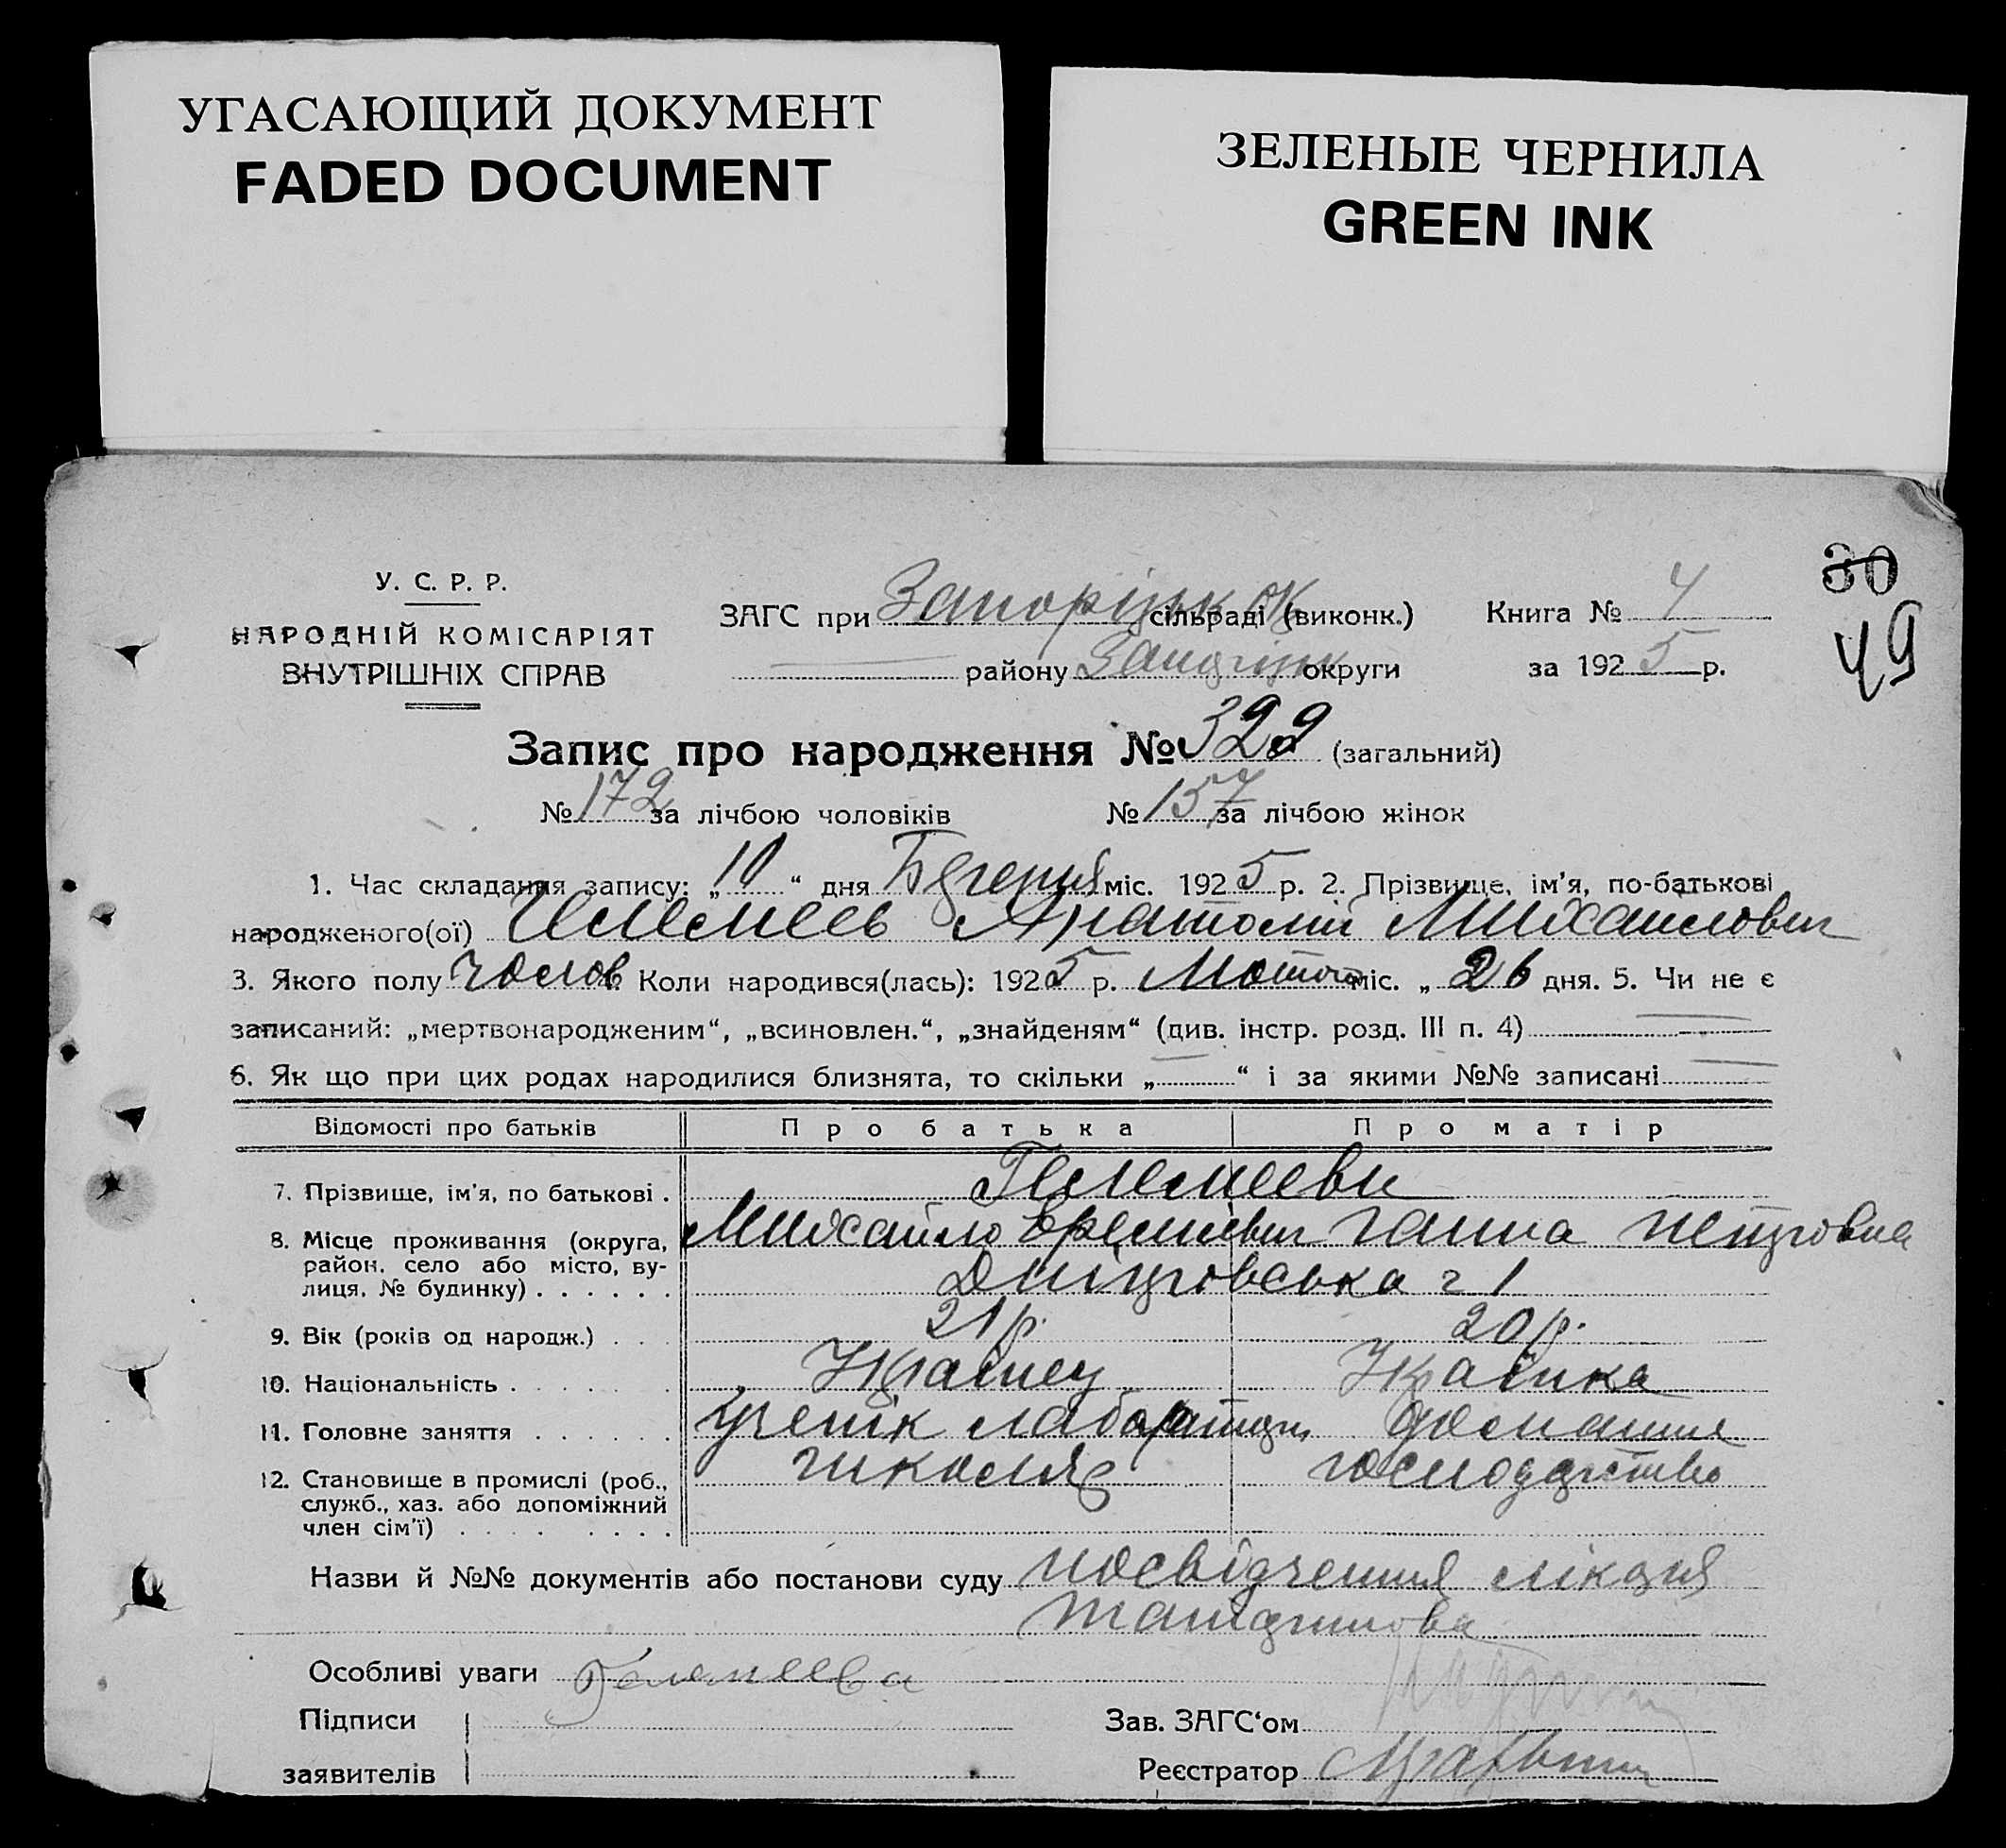 УГАСАЮЩИЙ ДОКУМЕНТ
FADED DOCUMENT
ЗЕЛЕНЫЕ ЧЕРНИЛА
GREEN INK
30
49
У. С. Р. Р.
НАРОДНІЙ КОМІСАРІЯТ
ВНУТРІШНІХ СПРАВ
ЗАГС при Запоріцьк ок сільраді (виконк.)
району округи
Книга № 4
за 1925 р.
Запис про народження № 329 (загальний)
№ 172 за лічбою чоловіків № 157 за лічбою жінок
1. Час складання запису: „10“ дня міс. 1925 р. 2. Прізвище, ім’я, по-батькові
народженого(ої) Анатолій Михайлович
3. Якого полу чолов. Коли народився(лась): 1925 р. Лютого міс. „26 дня. 5. Чи не є
записаний: „мертвонародженим“, „всиновлен.“, „знайденям“ (див. інстр. розд. III п. 4)
6. Як що при цих родах народилися близнята, то скільки „ “ і за якими №№ записані
Відомості про батьків Про батька Про матір
7. Прізвище, ім’я, по батькові .
8. Місце проживання (округа, район, село або місто, вулиця, № будинку) . . . . . . Михайло Ганна Петровна
9. Вік (років од народж.) . . . 21 р. 20 р.
10. Національність . . . . . . Українец Українка
11. Головне заняття . . . . . . ученік домашнє
12. Становище в промислі (роб., служб., хаз. або допоміжний член сім’ї) . . . . . . . . школи господарство
Назви й №№ документів або постанови суду посвідчення лікаря
Особливі уваги
Підписи
заявителів
Зав. ЗАГС‘ом
Реєстратор